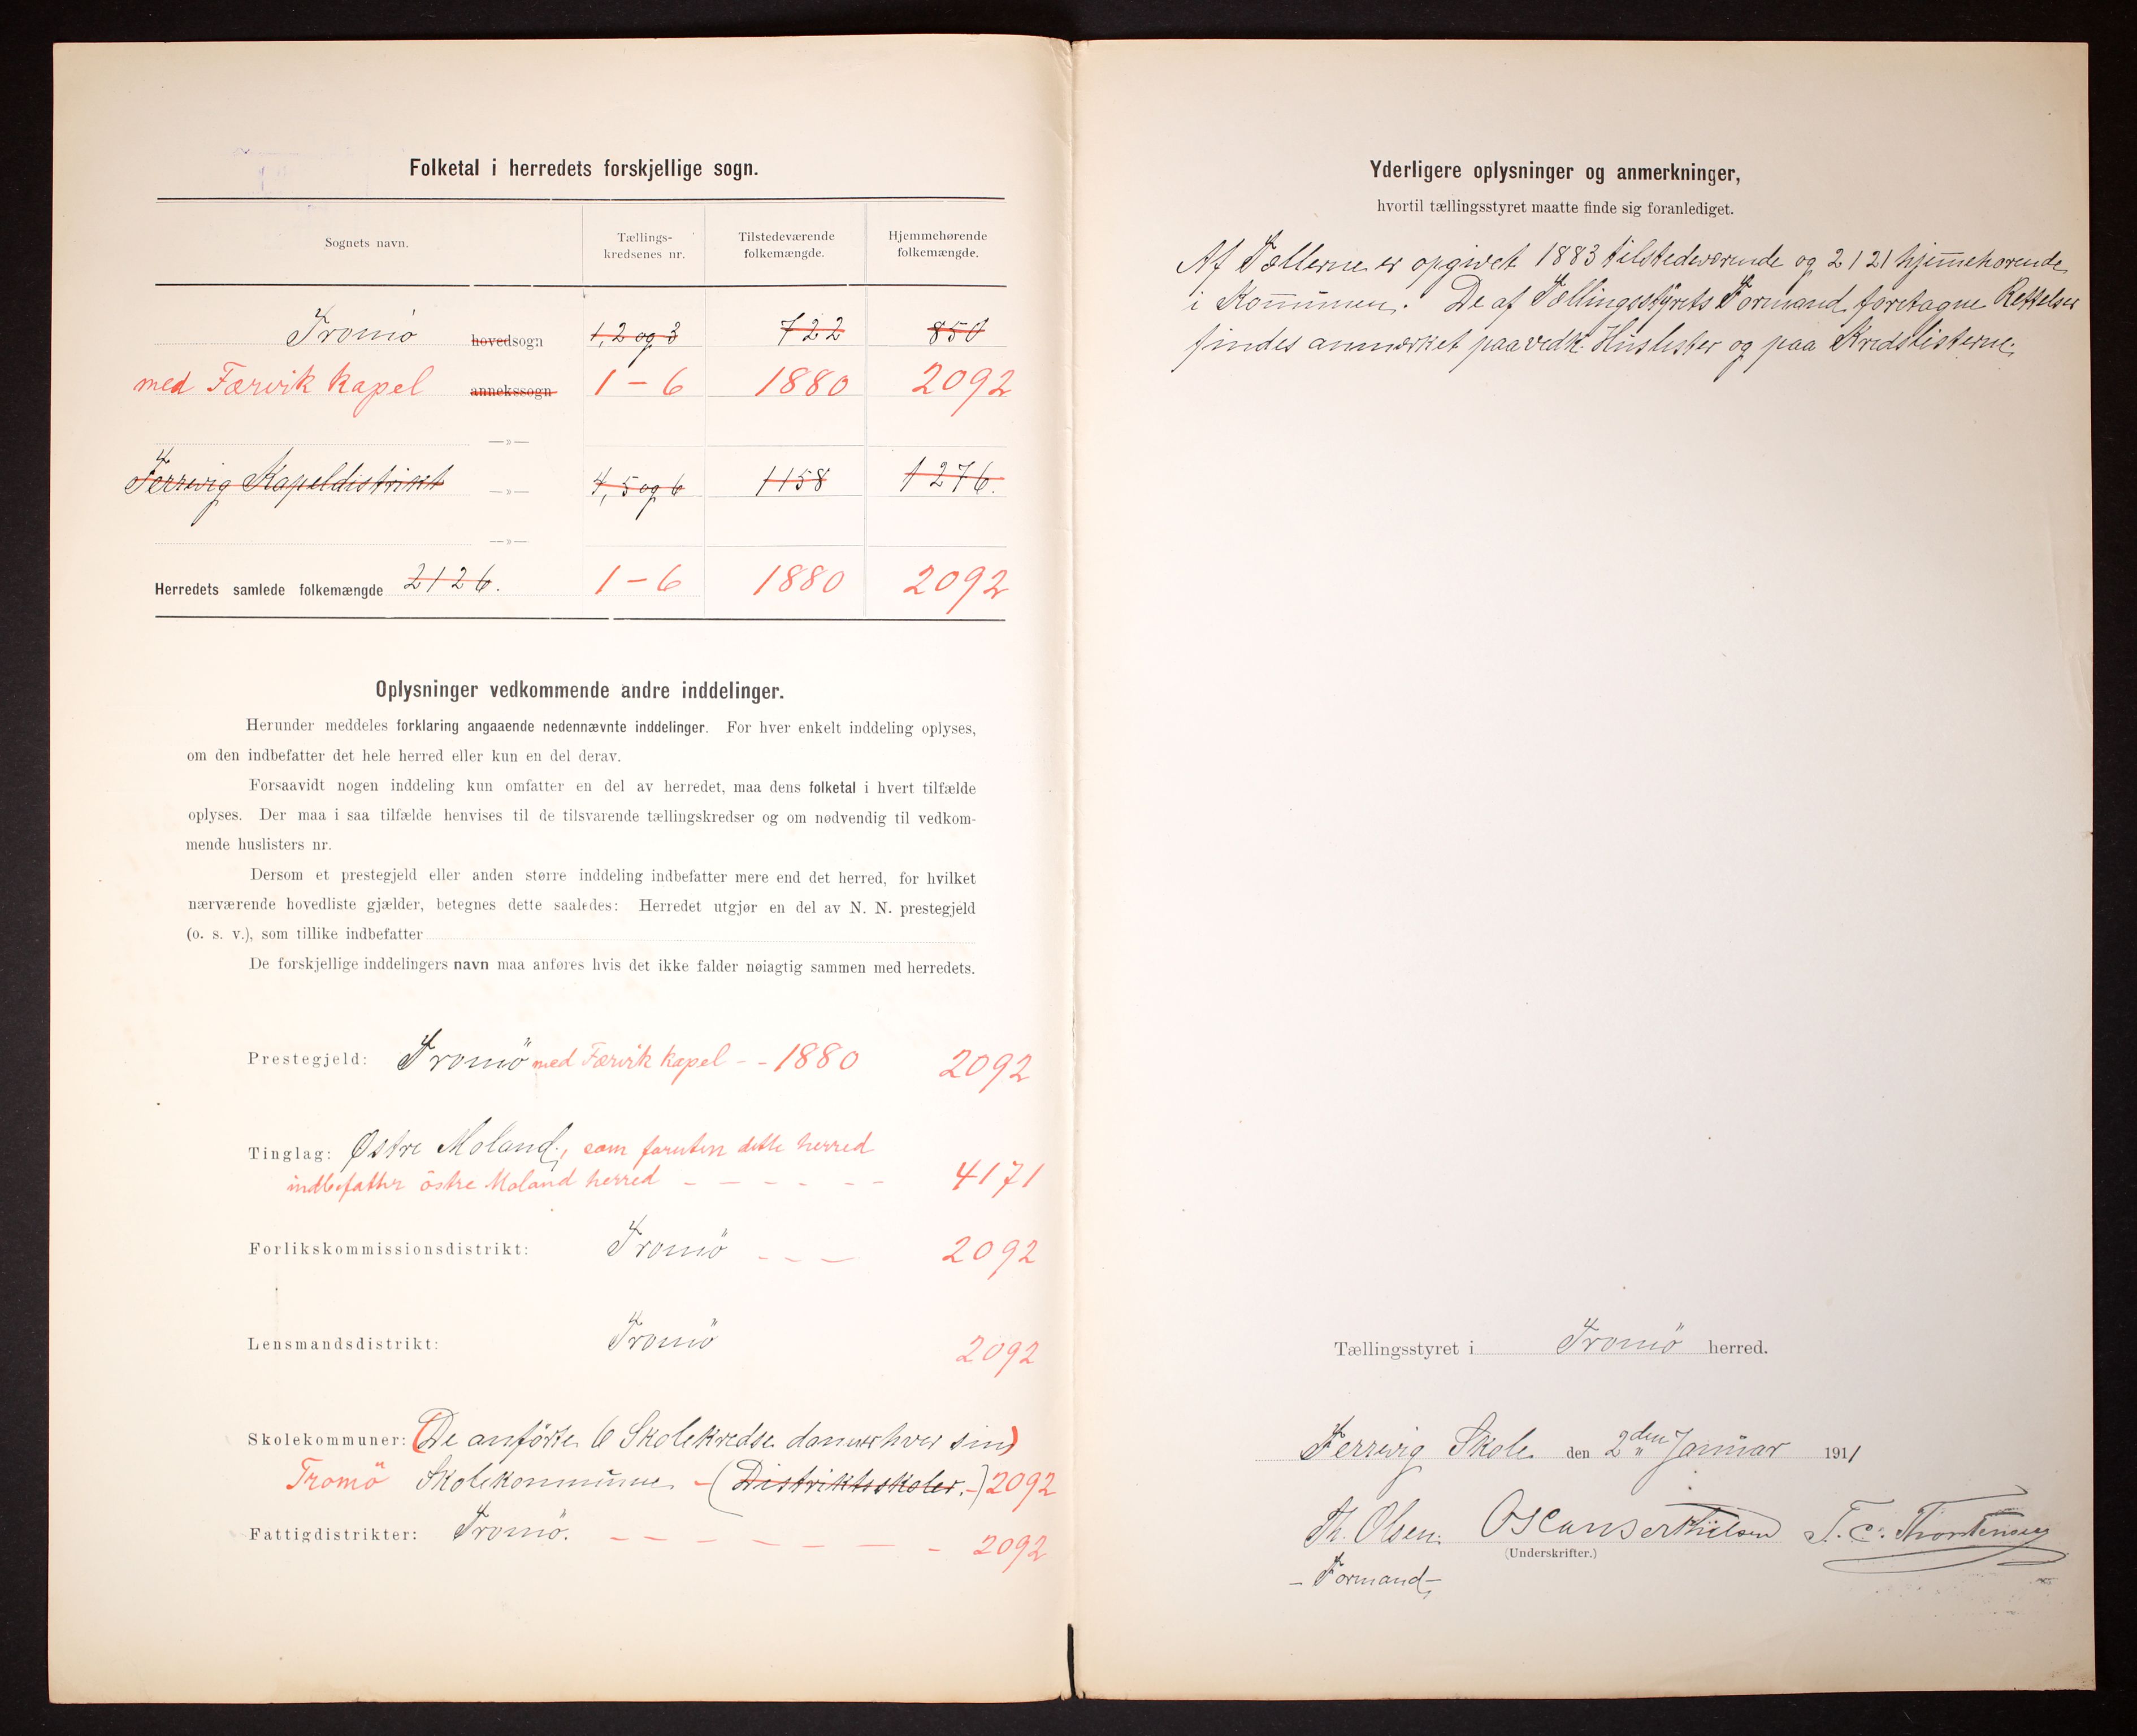 Folketal i herredets forskjellige sogn.
Sognets navn.
Tællings-
kredsenes nr.
Tilstedeværende
folkemængde.
Hjemmehørende
folkemængde.
Tromö hovedsogn 1, 2 og 3 722 850
med Færvik kapel annekssogn 1 – 6 1880 2092
—»—
Ferrevig Kapeldistrikt —»— 4, 5 og 6 1158 1276.
—»—
Herredets samlede folkemængde 2126. 1 – 6 1880 2092
Oplysninger vedkommende andre inddelinger.
Herunder meddeles forklaring angaaende nedennævnte inddelinger. For hver enkelt inddeling oplyses,
om den indbefatter det hele herred eller kun en del derav.
Forsaavidt nogen inddeling kun omfatter en del av herredet, maa dens folketal i hvert tilfælde
oplyses. Der maa i saa tilfælde henvises til de tilsvarende tællingskredser og om nødvendig til vedkom-
mende huslisters nr.
Dersom et prestegjeld eller anden større inddeling indbefatter mere end det herred, for hvilket
nærværende hovedliste gjælder, betegnes dette saaledes: Herredet utgjør en del av N. N. prestegjeld
(o. s. v.), som tillike indbefatter
De forskjellige inddelingers navn maa anføres hvis det ikke falder nøiagtig sammen med herredets.
Prestegjeld: Tromö med Færvik kapel - - 1880 2092
Tinglag: Østre Moland, som foruten dette herred
indbefatter östre Moland herred - - - - - - 4171
Forlikskommissionsdistrikt: Tromö - - - 2092
Lensmandsdistrikt: Tromö 2092
Skolekommuner: (De anförte 6 Skolekredse danner hver sin)
Tromö Skolekommune - (Distriktsskoler.-) 2092
Fattigdistrikter: Tromö. - - - - - - - - 2092
Yderligere oplysninger og anmerkninger,
hvortil tællingsstyret maatte finde sig foranlediget.
Af Tællerne er opgivet 1883 tilstedeværende og 2121 hjemmehørende
i Kommunen. De af Tællingsstyrets Formand foretagne Rettelser
findes anmærket paa vedk. Huslister og paa Kredslisterne.
Tællingsstyret i Tromö herred.
Ferrevig Skole den 2den Januar 1911
Th. Olsen. T. C. Thorstensen
(Underskrifter.)
- Formand -